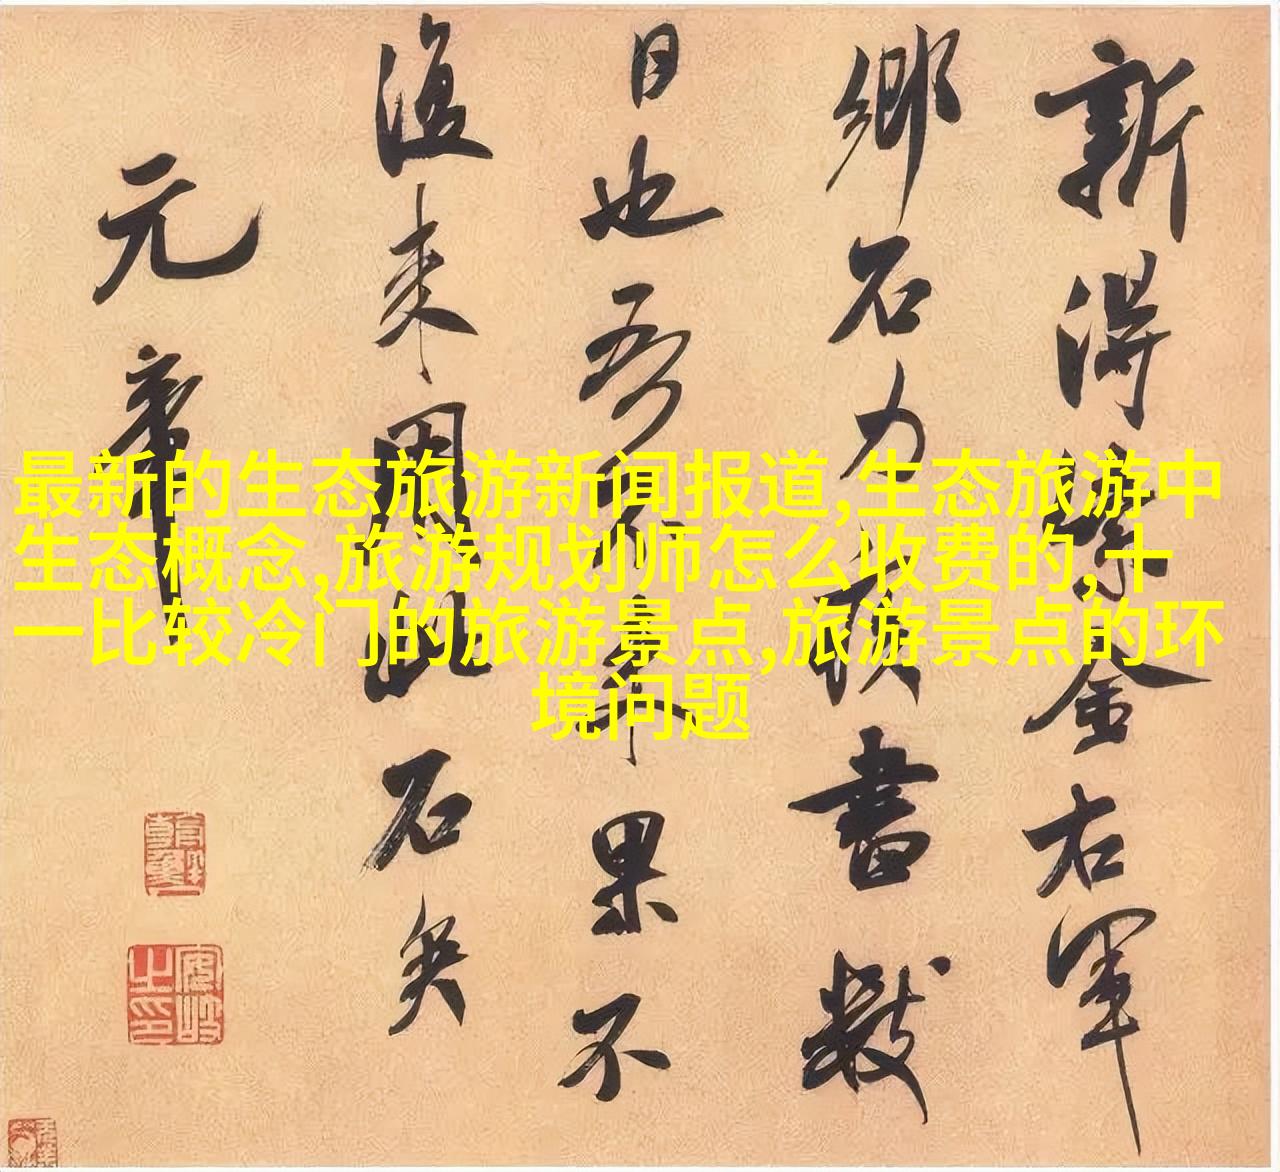 新得紫金右軍
鄉石力疾書數
日也吾果不
復来用此石矣
元章
最新的生态旅游新闻报道,生态旅游中
生态概念,旅游规划师怎么收费的,十
一比较冷门的旅游景点,旅游景点的环
境问题